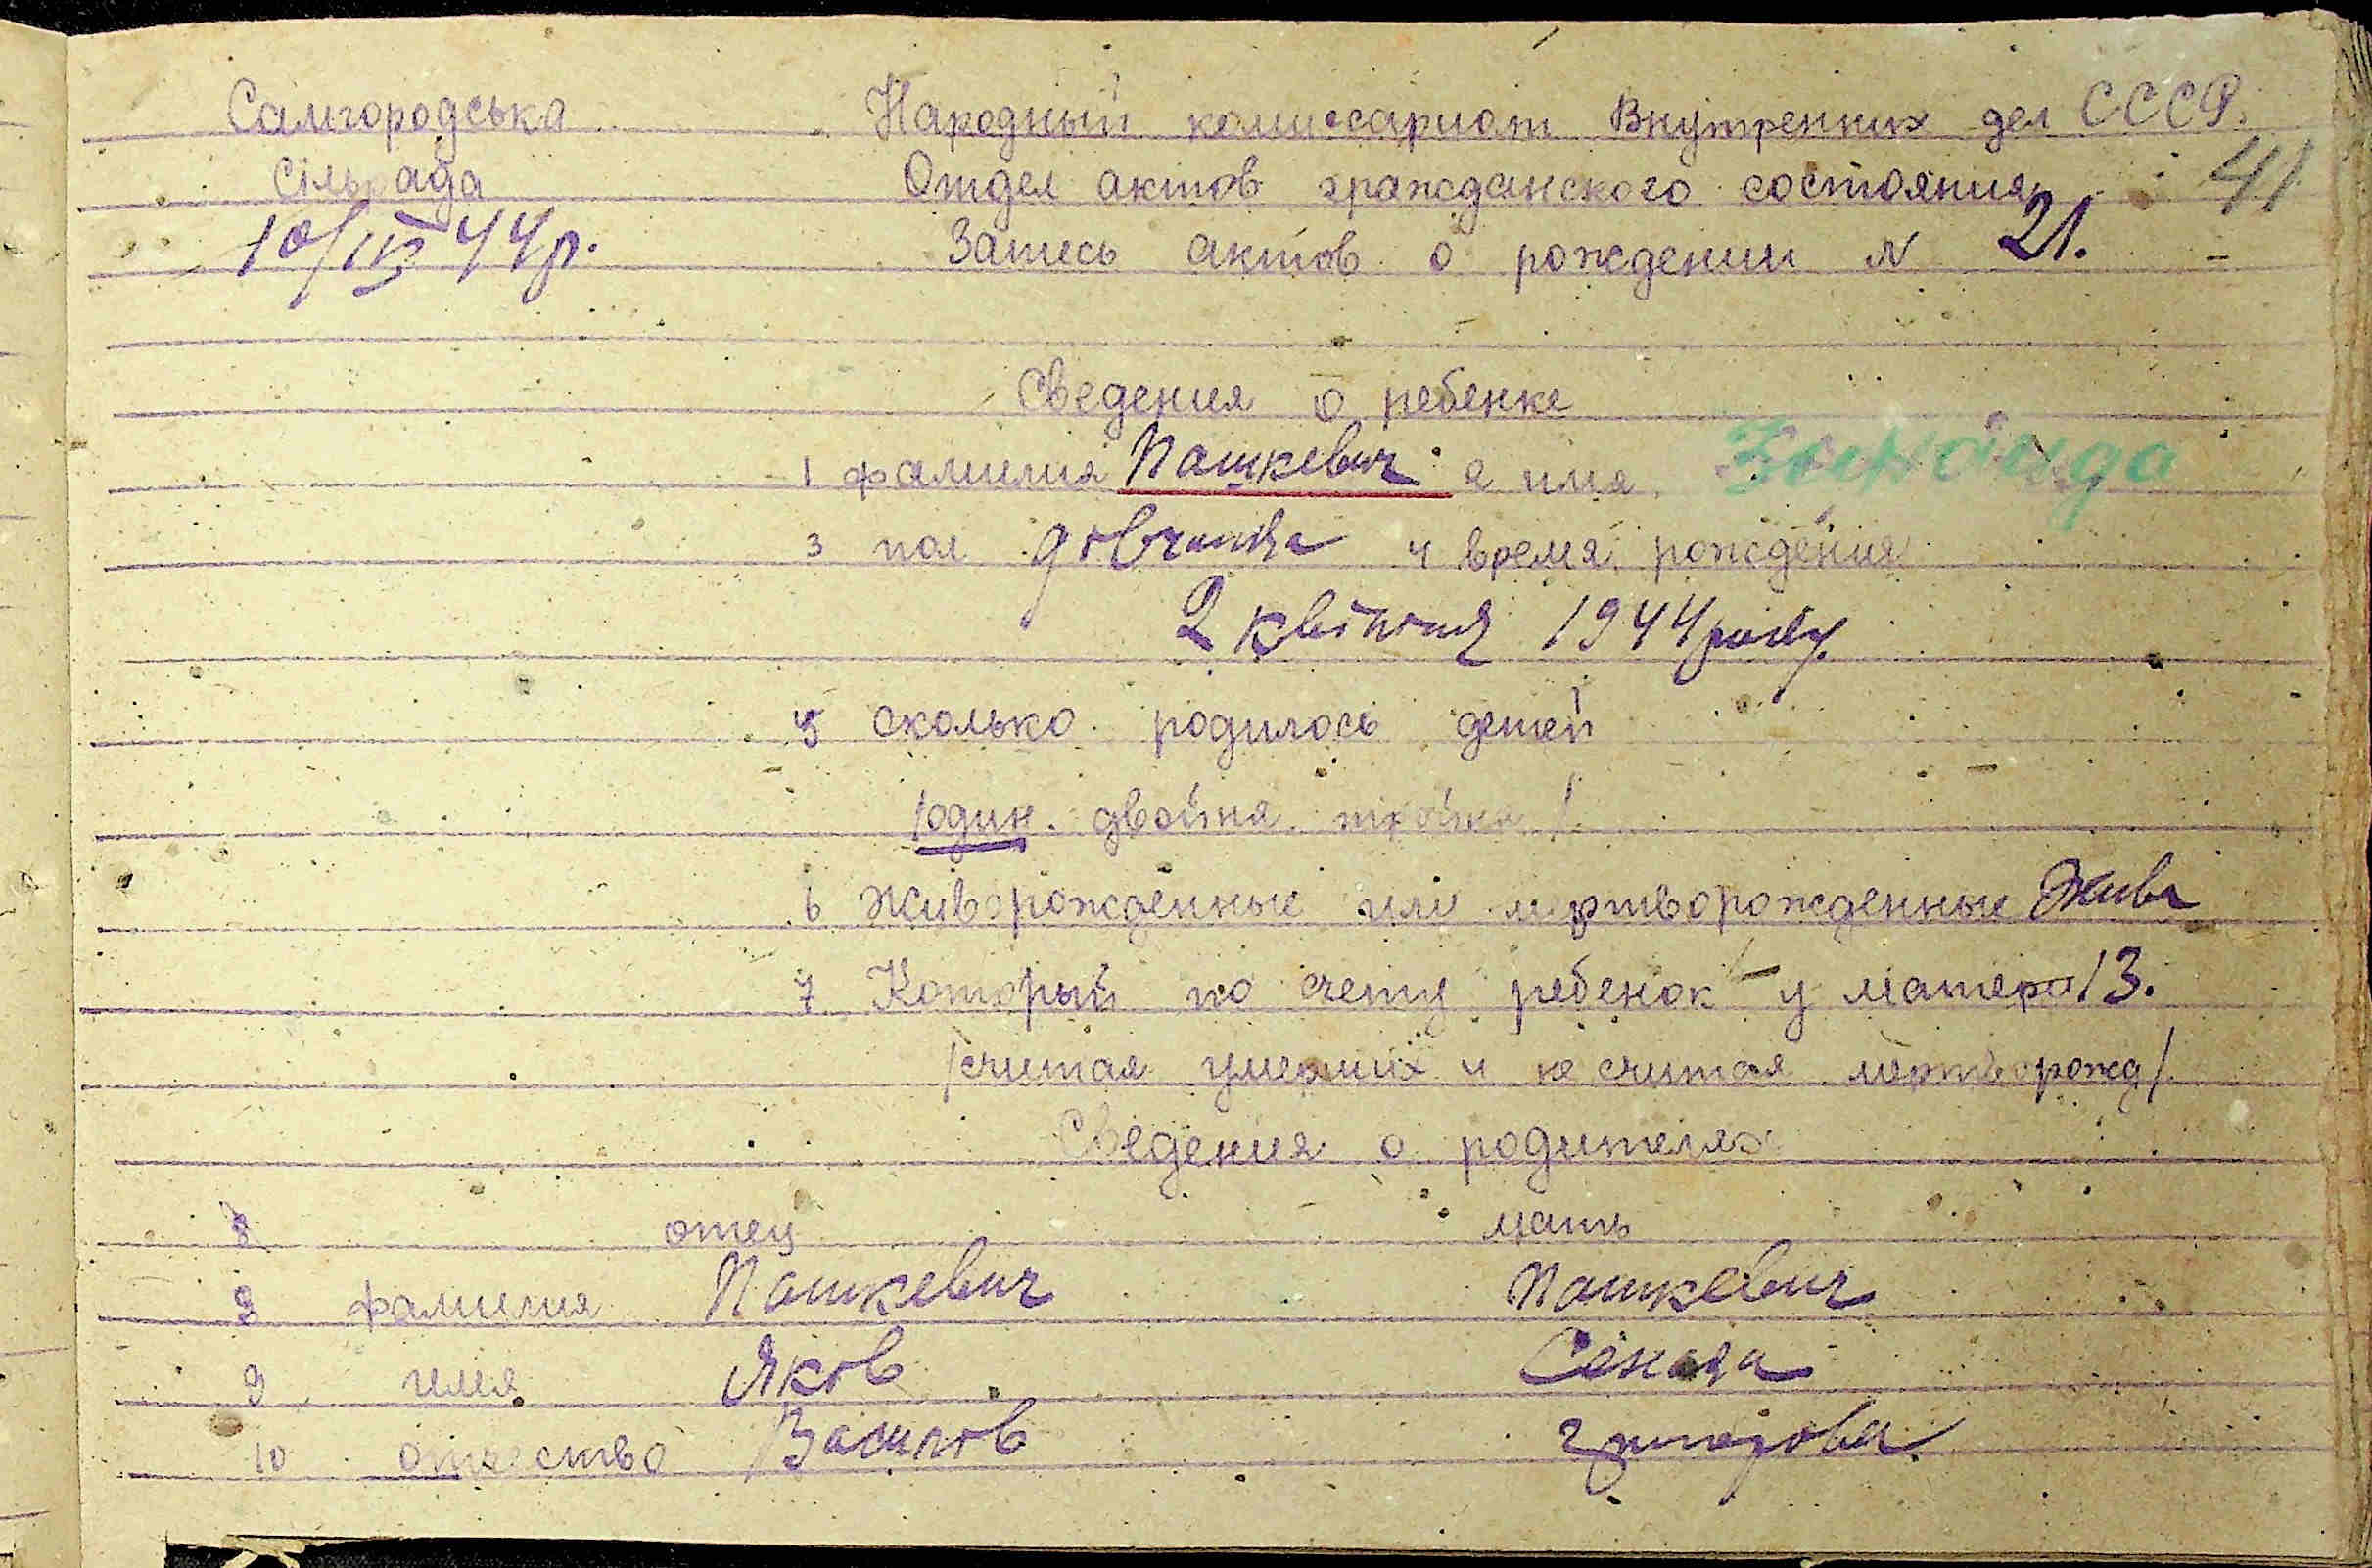 Самгородська Народный комиссариат Внутренних дел СССР.
Сільрада Отдел актов гражданского состояния 41
10/IV 44р. Запесь актов о рождении N 21.
Сведения о ребенке
1 фамилия Пашкевич 2 имя
3 пол дівчинка 4 время рождения
2 квітня 1944 року.
5 сколько родилось детей
/один. двойня тройня/
6 живорожденные или мертворожденные Жива
7 Который по счету ребенок у матери 3.
/считая умерших и не считая мертворожд/
Сведения о родителях
8 отец мать
9 фамилия Пашкевич Пашкевич
9 имя Яков
10 отчество Васильов